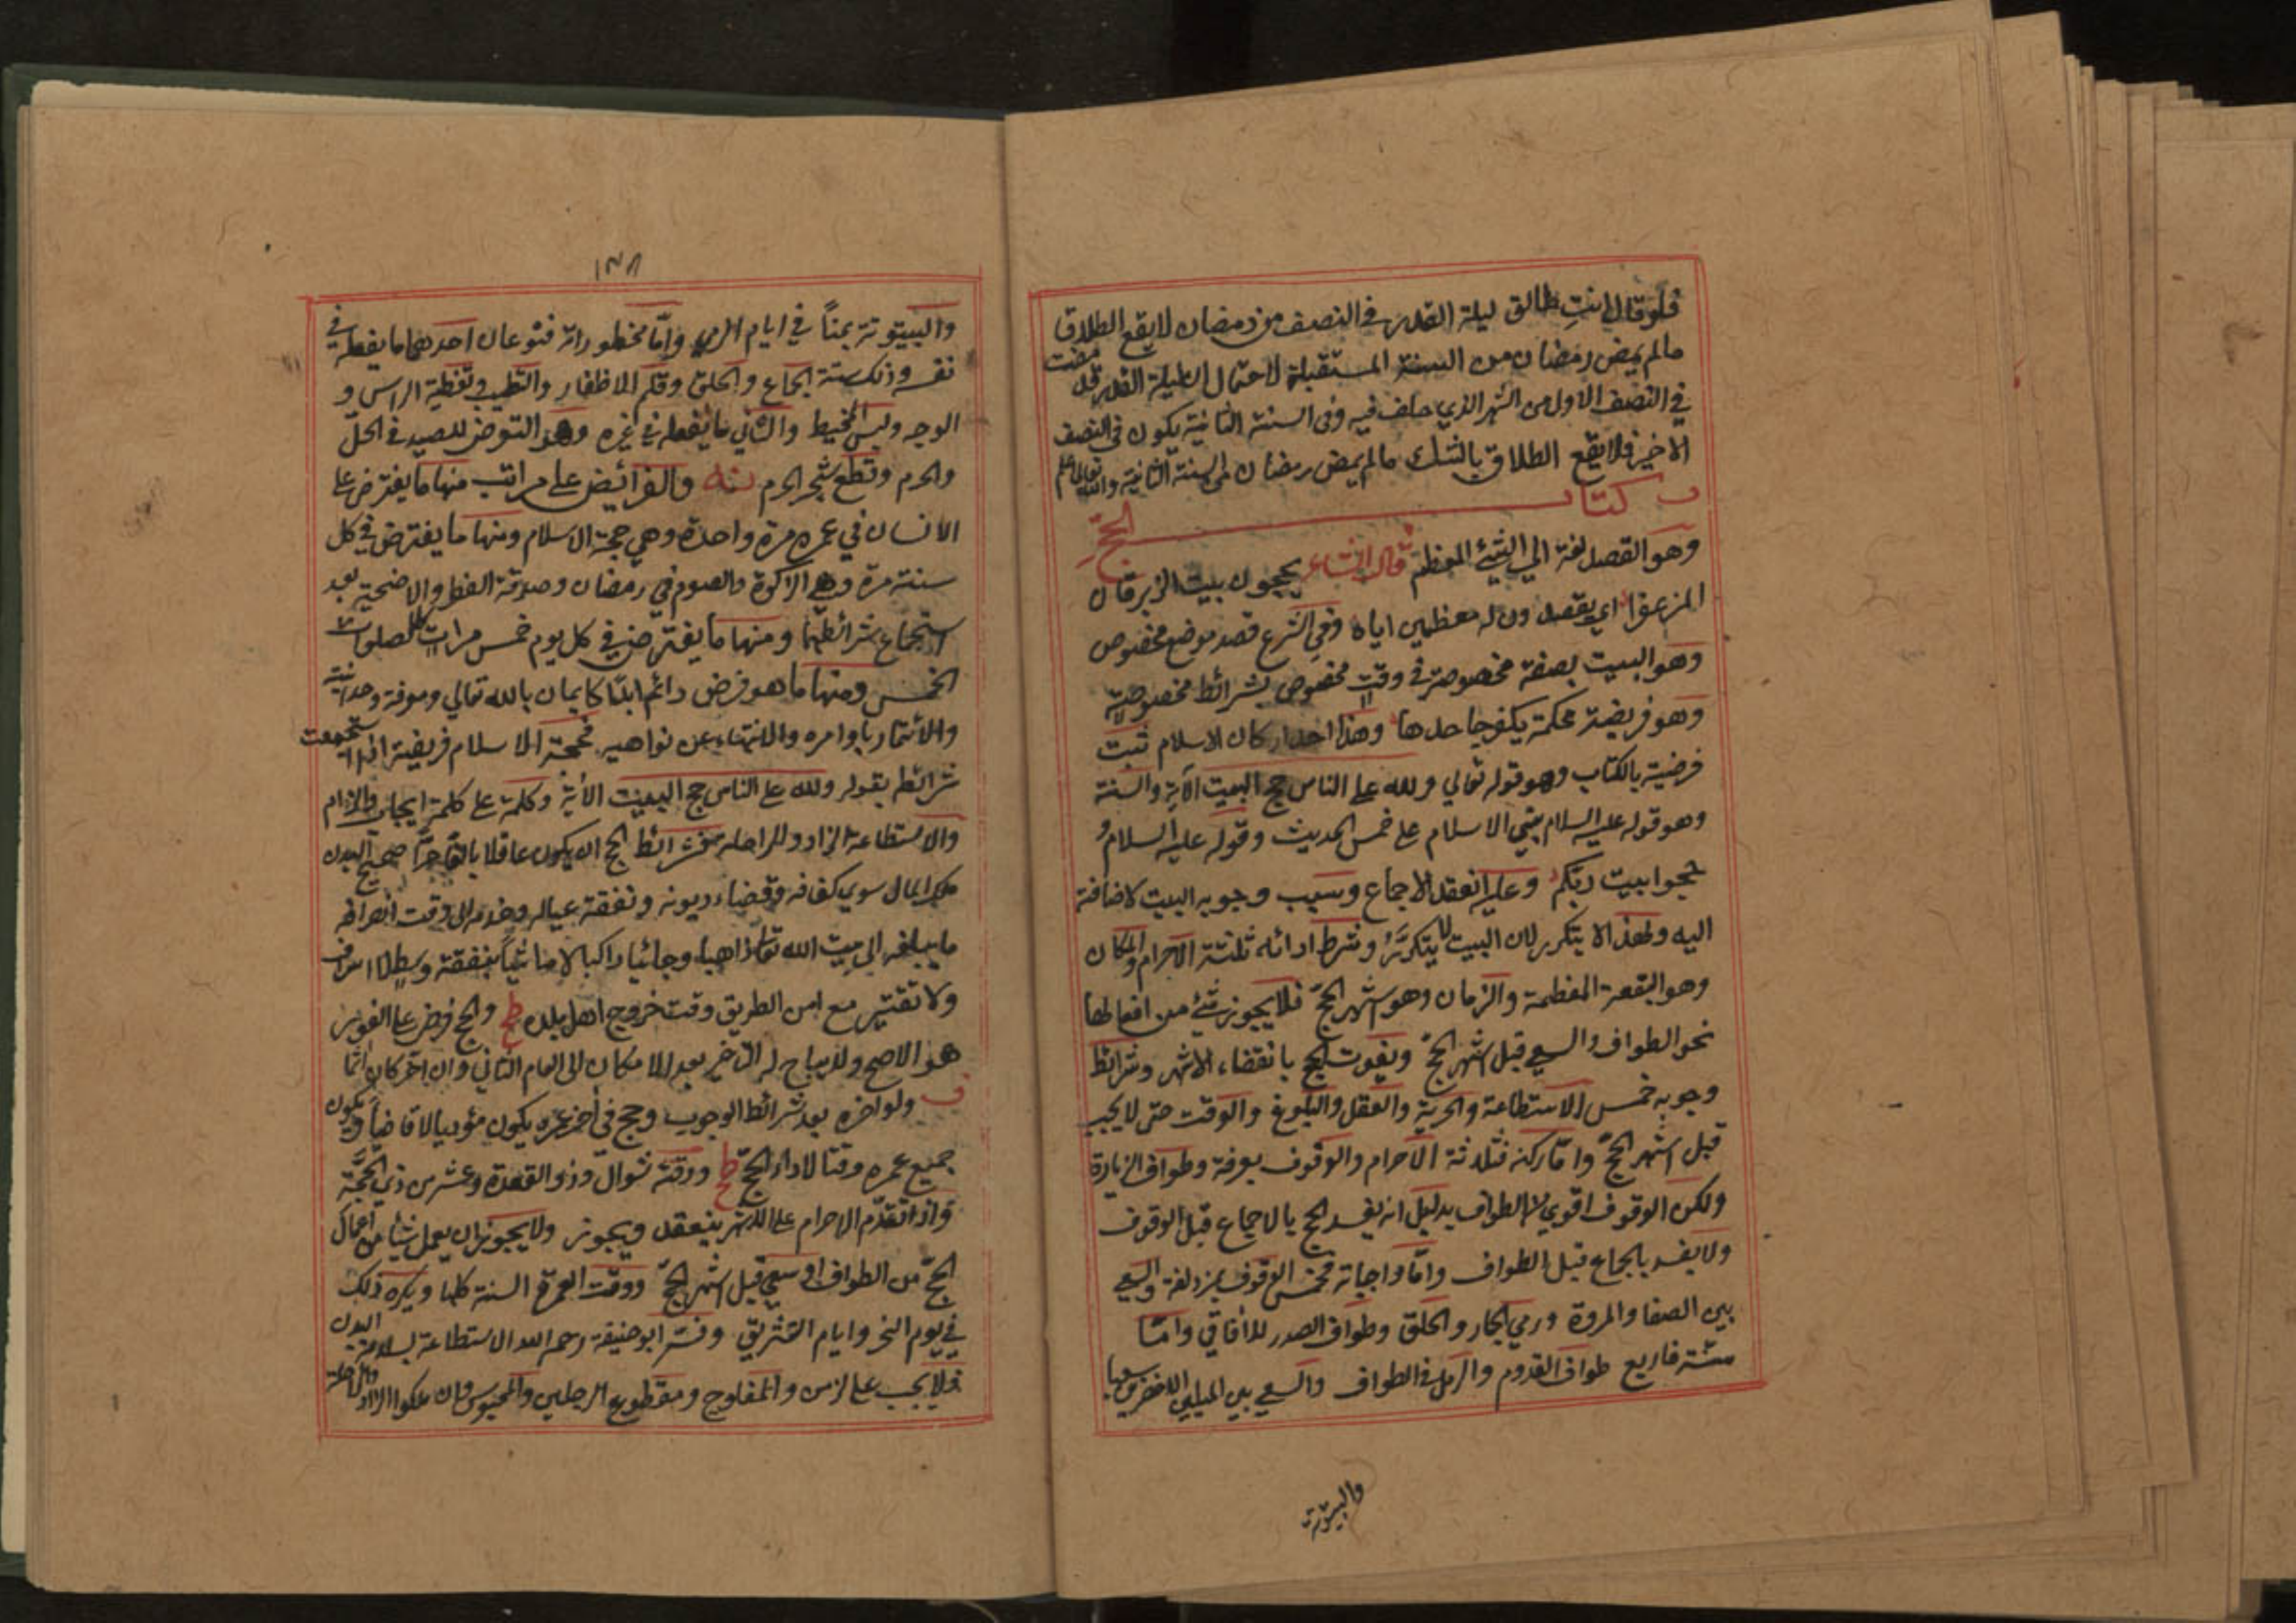 فلو قال انتِ طالق ليلة القدر في النصف من رمضان لا يقع الطلاق
مالم يمض رمضان من السنة المستقبلة لاحتمال ان ليلة القدر قد مضت
في النصف الاول من الشهر الذي حلف فيه وفي السنة الثانية يكون في النصف
الاخير فلا يقع الطلاق بالشك مالم يمض رمضان من السنة الثانية والله تعالى اعلم
كتاب الحج
وهو القصد لغة الي الشئ المعظم قال الشاعر يحجون بيت الزبرقان
المزعفرا اي يقصدونه معظمين اياه وفي الشرع قصد موضع مخصوص
وهو البيت بصفة مخصوصة في وقت مخصوص بشرائط مخصوصة
وهو فريضة محكمة يكفر جاحدها وهذا احد اركان الاسلام ثبت
فرضية بالكتاب وهو قوله تعالي ولله علي الناس حج البيت الآية والسنة
وهو قوله عليه السلام بني الاسلام علي خمس الحديث وقوله عليه السلام و
حجوا بيت ربكم وعليه انعقد الاجماع وسبب وجوبه البيت لاضافته
اليه ولهذا لا يتكرر لان البيت لا يتكرر وشرط ادائه ثلثة الاحرام والمكان
وهو البقعة المعظمة والزمان وهو اشهر الحج فلا يجوز شئ من افعالها
نحو الطواف والسعي قبل اشهر الحج ويفوت الحج بانقضاء الاشهر وشرائط
وجوبه خمس الاستطاعة والحرية والعقل والبلوغ والوقت حتى لا يجب
قبل اشهر الحج واما ركنه فثلاثة الاحرام والوقوف بعرفة وطواف الزيارة
ولكن الوقوف اقوي من الطواف بدليل انه يفسد الحج بالجماع قبل الوقوف
ولا يفسد بالجماع قبل الطواف واما واجباته فخمس الوقوف بمزدلفة والسعي
بين الصفا والمروة ورمي الجمار والحلق وطواف الصدر للآفاقي واما
سنته فاربع طواف القدوم والرمل في الطواف والسعي بين الميلين الاخضرين سعيا
والبيتوتة
١٣٨
والبيتوتة بمناً في ايام الرمي واما محظوراته فنوعان احدهما ما يفعله في
نفسه وذلك ستة الجماع والحلق وقلم الاظفار والتطيب وتغطية الراس و
الوجه ولبس المخيط والثاني ما يفعله في غيره وهو التعرض للصيد في الحل
والحرم وقطع شجر الحرم والفرائض علي مراتب منها ما يفترض علي
الانسان في عمره مرة واحدة وهي حجة الاسلام ومنها ما يفترض في كل
سنة مرة وهي الزكوة والصوم في رمضان وصدقة الفطر والاضحية بعد
استجماع شرائطها ومنها ما يفترض في كل يوم خمس مرات كالصلوات
الخمس ومنها ما هو فرض دائم ابداً كايمان بالله تعالي ومعرفة وحدانيته
والائتمار باوامره والانتهاء عن نواهيه فحجة الاسلام فريضة اذا استجمعت
شرائطه بقوله ولله علي الناس حج البيت الآية وكلمة علي كلمة ايجاب والزام
والاستطاعة الزاد والراحلة فشرائط الحج ان يكون عاقلا بالغا حرّا صحيح البدن
ملك المال سوي كفافه وقضاء ديونه ونفقة عياله وخدمه الي وقت انصرافه
ما يبلغه الي بيت الله تعالى ذاهبا وجائيا راكبا لا ماشيا بنفقة وسط لا اسراف
ولا تقتير مع امن الطريق وقت خروج اهل بلده والحج فرض علي الفور
هو الاصح ولا يباح له التأخير بعد الامكان الي العام الثاني وان اخر كان اثما
ولو اخره بعد شرائط الوجوب وحج في اخر عمره يكون مؤديا لا قاضياً ويكون
جميع عمره وقتا لاداء الحج ووقته شوال وذو القعدة وعشر من ذي الحجة
واذا تقدم الاحرام علي الاشهر ينعقد ويجوز ولا يجوز ان يعمل شيئا من اعمال
الحج من الطواف او سعي قبل اشهر الحج ووقت العمرة السنة كلها ويكره ذلك
في يوم النحر وايام التشريق وفسر ابو حنيفة رحمه الله الاستطاعة بسلامة البدن
فلا يجب علي الزمن والمفلوج ومقطوع الرجلين والمحبوس وان ملكوا الزاد والراحلة